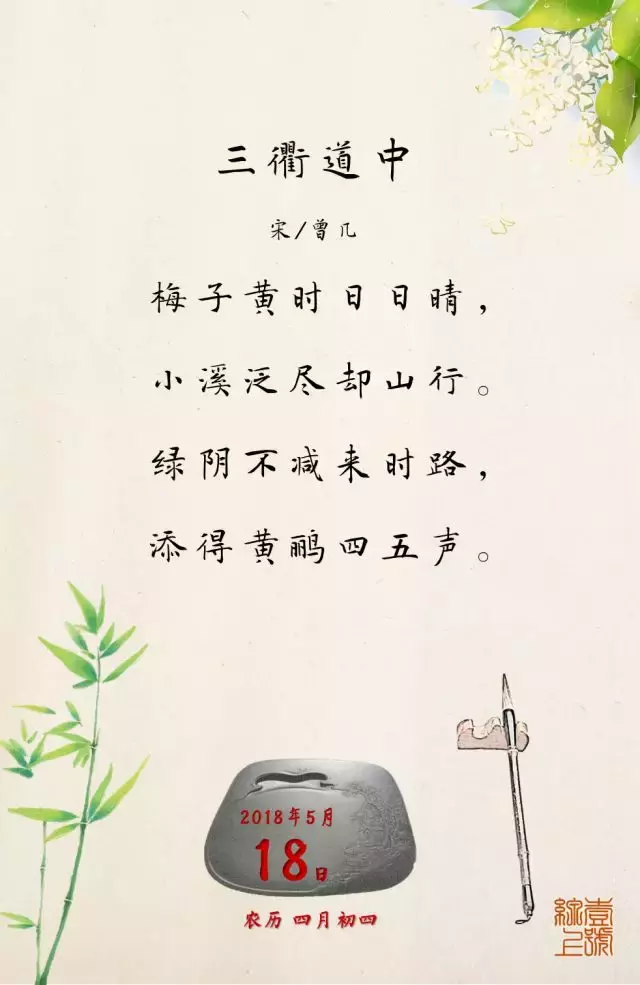 三衢道中
宋/曾几
梅子黄时日日晴，
小溪泛尽却山行。
绿阴不减来时路，
添得黄鹂四五声。
2018年5月
18日
农历 四月初四